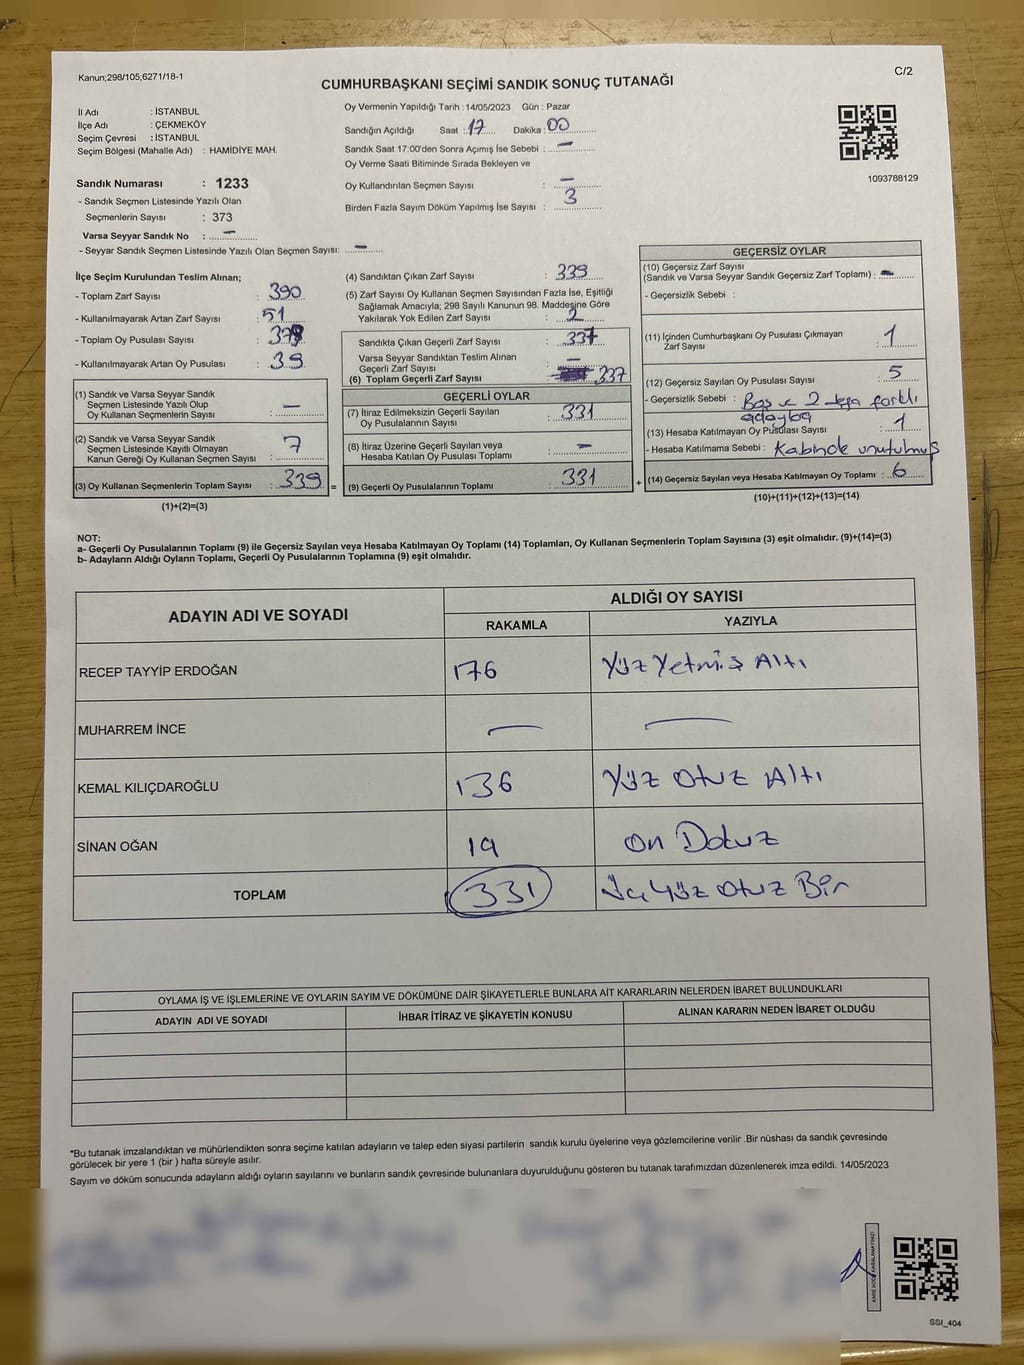 Kanun;298/105;6271/18-1
C/2
CUMHURBAŞKANI SEÇİMİ SANDIK SONUÇ TUTANAĞI
İl Adı : İSTANBUL
İlçe Adı : ÇEKMEKÖY
Seçim Çevresi : İSTANBUL
Seçim Bölgesi (Mahalle Adı) : HAMİDİYE MAH.
Sandık Numarası : 1233
- Sandık Seçmen Listesinde Yazılı Olan
Seçmenlerin Sayısı : 373
Varsa Seyyar Sandık No : —
- Seyyar Sandık Seçmen Listesinde Yazılı Olan Seçmen Sayısı: —
Oy Vermenin Yapıldığı Tarih : 14/05/2023 Gün : Pazar
Sandığın Açıldığı Saat : 17 Dakika : 00
Sandık Saat 17:00'den Sonra Açımış İse Sebebi : —
Oy Verme Saati Bitiminde Sırada Bekleyen ve
Oy Kullandırılan Seçmen Sayısı : —
Birden Fazla Sayım Döküm Yapılmış İse Sayısı : 3
1093788129
İlçe Seçim Kurulundan Teslim Alınan;
- Toplam Zarf Sayısı : 390
- Kullanılmayarak Artan Zarf Sayısı : 51
- Toplam Oy Pusulası Sayısı :
- Kullanılmayarak Artan Oy Pusulası : 39
(1) Sandık ve Varsa Seyyar Sandık
Seçmen Listesinde Yazılı Olup
Oy Kullanan Seçmenlerin Sayısı : —
(2) Sandık ve Varsa Seyyar Sandık
Seçmen Listesinde Kayıtlı Olmayan
Kanun Gereği Oy Kullanan Seçmen Sayısı : 7
(3) Oy Kullanan Seçmenlerin Toplam Sayısı : 339 =
(1)+(2)=(3)
(4) Sandıktan Çıkan Zarf Sayısı : 339
(5) Zarf Sayısı Oy Kullanan Seçmen Sayısından Fazla İse, Eşitliği
Sağlamak Amacıyla; 298 Sayılı Kanunun 98. Maddesine Göre
Yakılarak Yok Edilen Zarf Sayısı : 2
Sandıkta Çıkan Geçerli Zarf Sayısı : 337
Varsa Seyyar Sandıktan Teslim Alınan
Geçerli Zarf Sayısı : —
(6) Toplam Geçerli Zarf Sayısı : 337
GEÇERLİ OYLAR
(7) İtiraz Edilmeksizin Geçerli Sayılan
Oy Pusulalarının Sayısı : 331
(8) İtiraz Üzerine Geçerli Sayılan veya
Hesaba Katılan Oy Pusulası Toplamı : —
(9) Geçerli Oy Pusulalarının Toplamı : 331 +
GEÇERSİZ OYLAR
(10) Geçersiz Zarf Sayısı
(Sandık ve Varsa Seyyar Sandık Geçersiz Zarf Toplamı) : —
- Geçersizlik Sebebi :
(11) İçinden Cumhurbaşkanı Oy Pusulası Çıkmayan
Zarf Sayısı : 1
(12) Geçersiz Sayılan Oy Pusulası Sayısı : 5
- Geçersizlik Sebebi : Boş ve 2 farklı
adaya
(13) Hesaba Katılmayan Oy Pusulası Sayısı : 1
- Hesaba Katılmama Sebebi : Kabinde unutulmuş
(14) Geçersiz Sayılan veya Hesaba Katılmayan Oy Toplamı : 6
(10)+(11)+(12)+(13)=(14)
NOT:
a- Geçerli Oy Pusulalarının Toplamı (9) ile Geçersiz Sayılan veya Hesaba Katılmayan Oy Toplamı (14) Toplamları, Oy Kullanan Seçmenlerin Toplam Sayısına (3) eşit olmalıdır. (9)+(14)=(3)
b- Adayların Aldığı Oyların Toplamı, Geçerli Oy Pusulalarının Toplamına (9) eşit olmalıdır.
ADAYIN ADI VE SOYADI
ALDIĞI OY SAYISI
RAKAMLA YAZIYLA
RECEP TAYYİP ERDOĞAN 176 Yüz Yetmiş Altı
MUHARREM İNCE — —
KEMAL KILIÇDAROĞLU 136 Yüz Otuz Altı
SİNAN OĞAN 19 On Dokuz
TOPLAM 331 Üç Yüz Otuz Bir
OYLAMA İŞ VE İŞLEMLERİNE VE OYLARIN SAYIM VE DÖKÜMÜNE DAİR ŞİKAYETLERLE BUNLARA AİT KARARLARIN NELERDEN İBARET BULUNDUKLARI
ADAYIN ADI VE SOYADI İHBAR İTİRAZ VE ŞİKAYETİN KONUSU ALINAN KARARIN NEDEN İBARET OLDUĞU
*Bu tutanak imzalandıktan ve mühürlendikten sonra seçime katılan adayların ve talep eden siyasi partilerin sandık kurulu üyelerine veya gözlemcilerine verilir .Bir nüshası da sandık çevresinde
görülecek bir yere 1 (bir ) hafta süreyle asılır.
Sayım ve döküm sonucunda adayların aldığı oyların sayılarını ve bunların sandık çevresinde bulunanlara duyurulduğunu gösteren bu tutanak tarafımızdan düzenlenerek imza edildi. 14/05/2023
KARE KODU KARALAMAYINIZ!
SSI_404